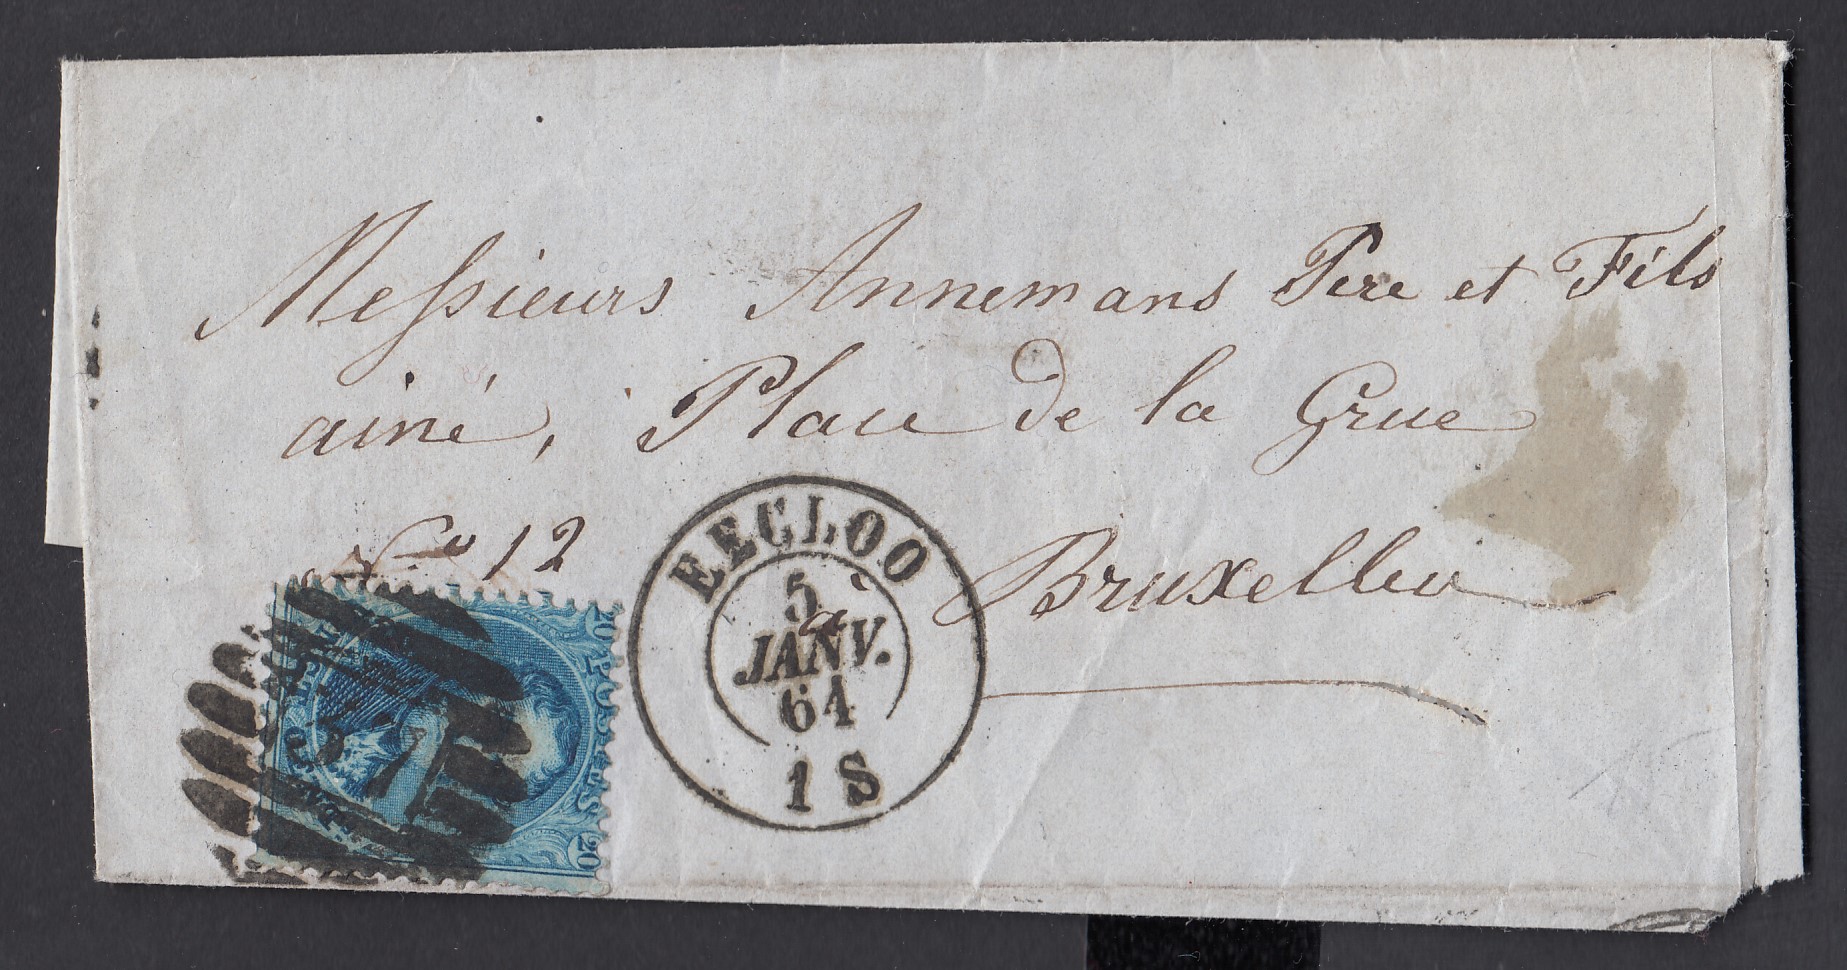 Messieurs Annemans Pere et Fils
ainé, Place de la Grue
No 12
à Bruxelles
EECLOO
5
JANV.
64
1 S
20 POSTES 20